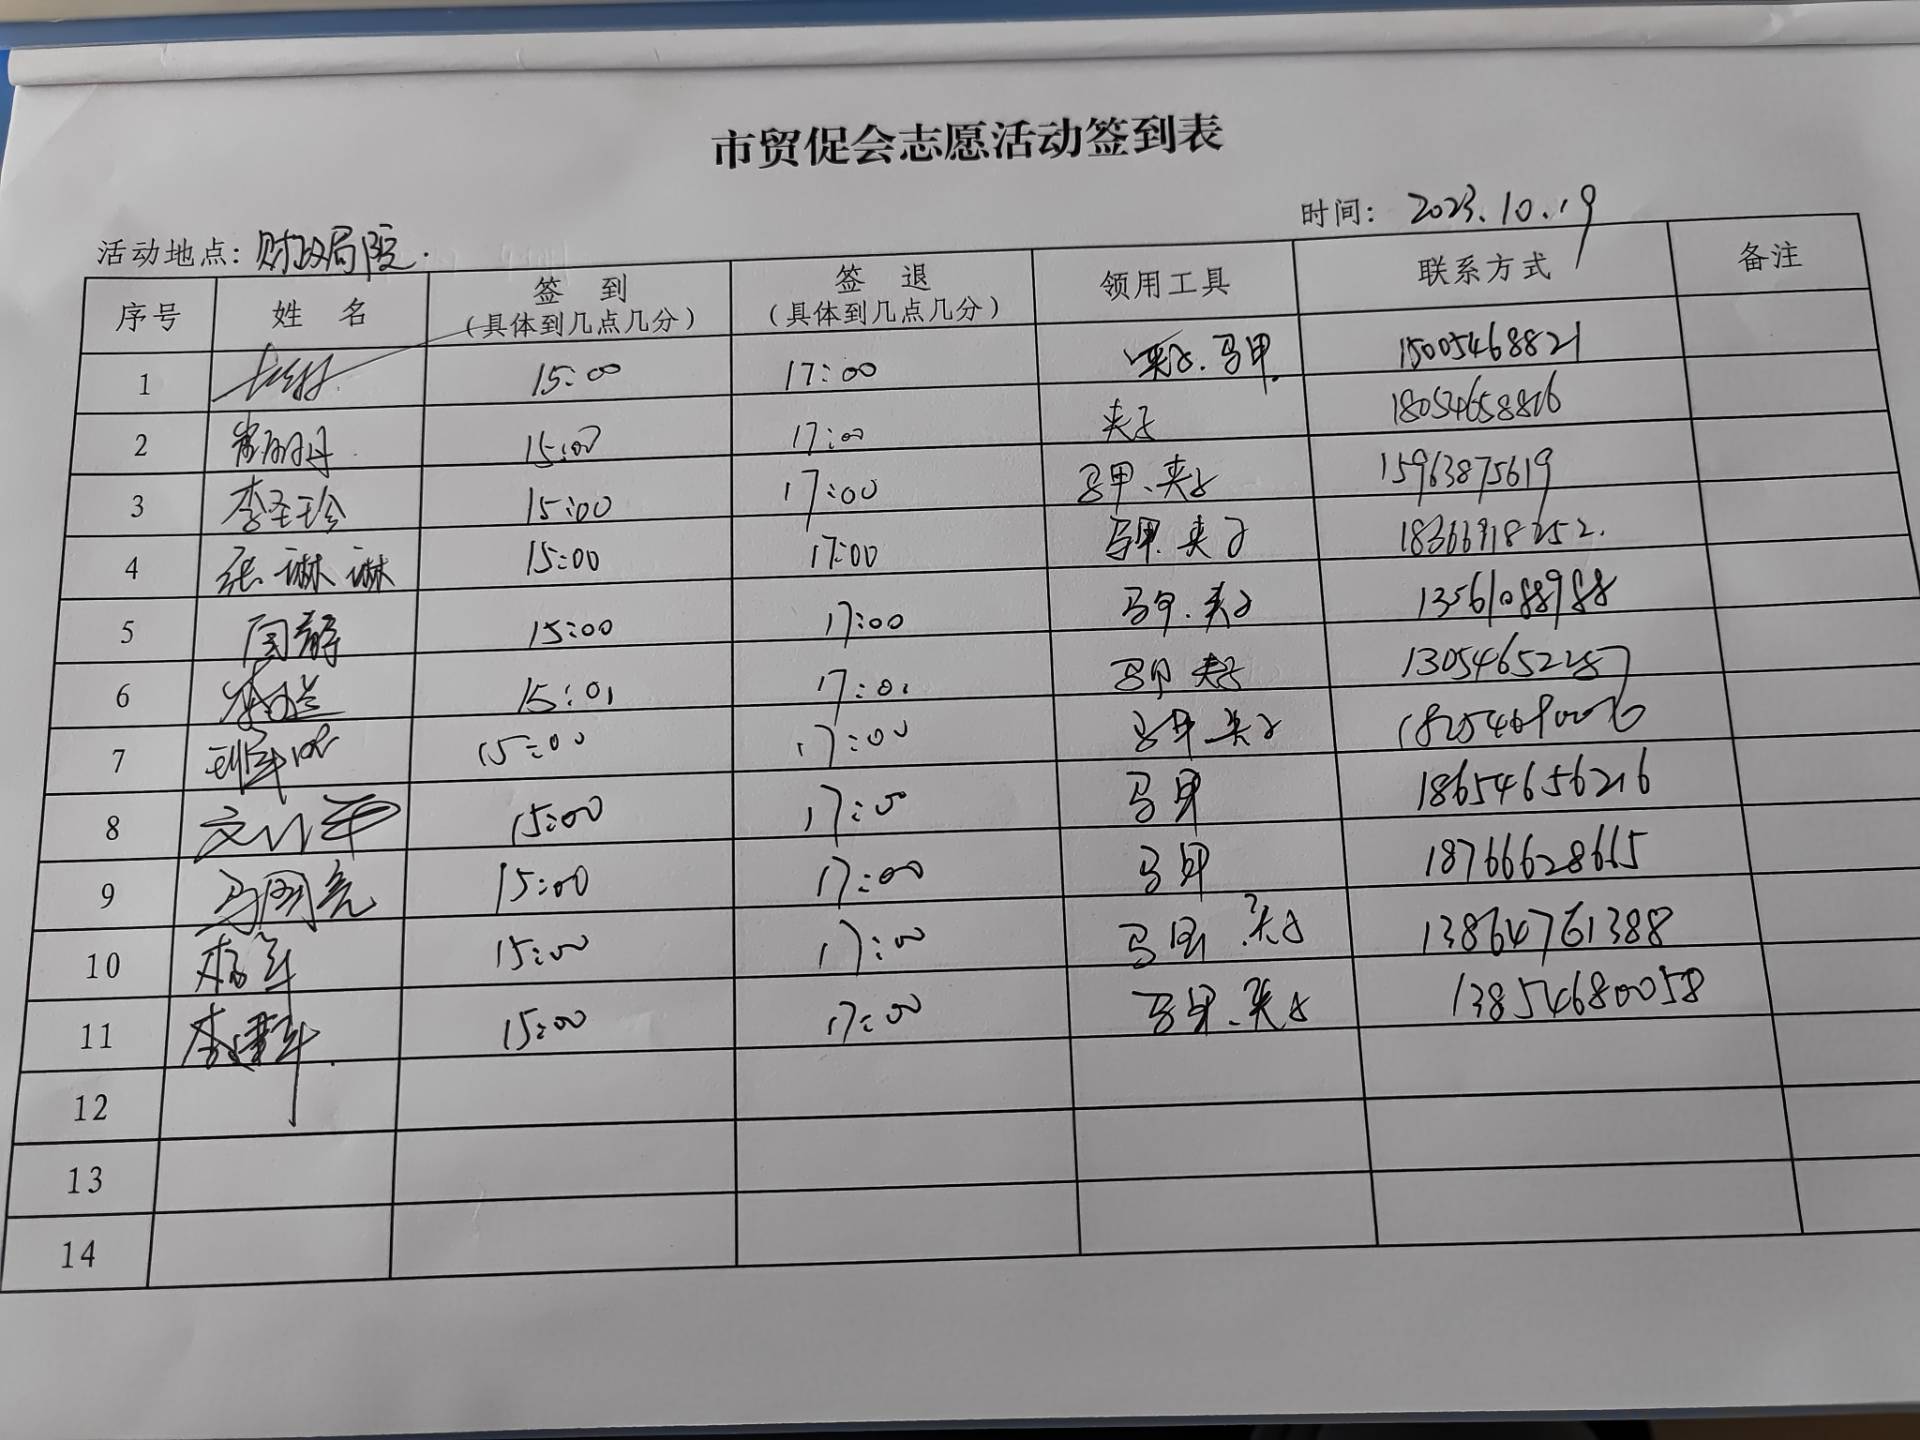 市贸促会志愿活动签到表
活动地点: 财政局院. 时间: 2023.10.19
序号 姓 名 签 到 (具体到几点几分) 签 退 (具体到几点几分) 领用工具 联系方式 备注
1 15:00 17:00 夹子.马甲. 15005468821
2 15:00 17:00 夹子 18054658816
3 李圣珍 15:00 17:00 马甲、夹子 15963875619
4 张琳琳 15:00 17:00 马甲.夹子 18366918252.
5 周静 15:00 17:00 马甲.夹子 13561088988
6 15:01 17:01 马甲 夹子 13054652257
7 15:00 17:00 马甲.夹子 18254690026
8 15:00 17:00 马甲 18654656216
9 马国亮 15:00 17:00 马甲 18766628665
10 15:00 17:00 马甲.夹子 13864761388
11 李建军. 15:00 17:00 马甲、夹子 13854680058
12
13
14